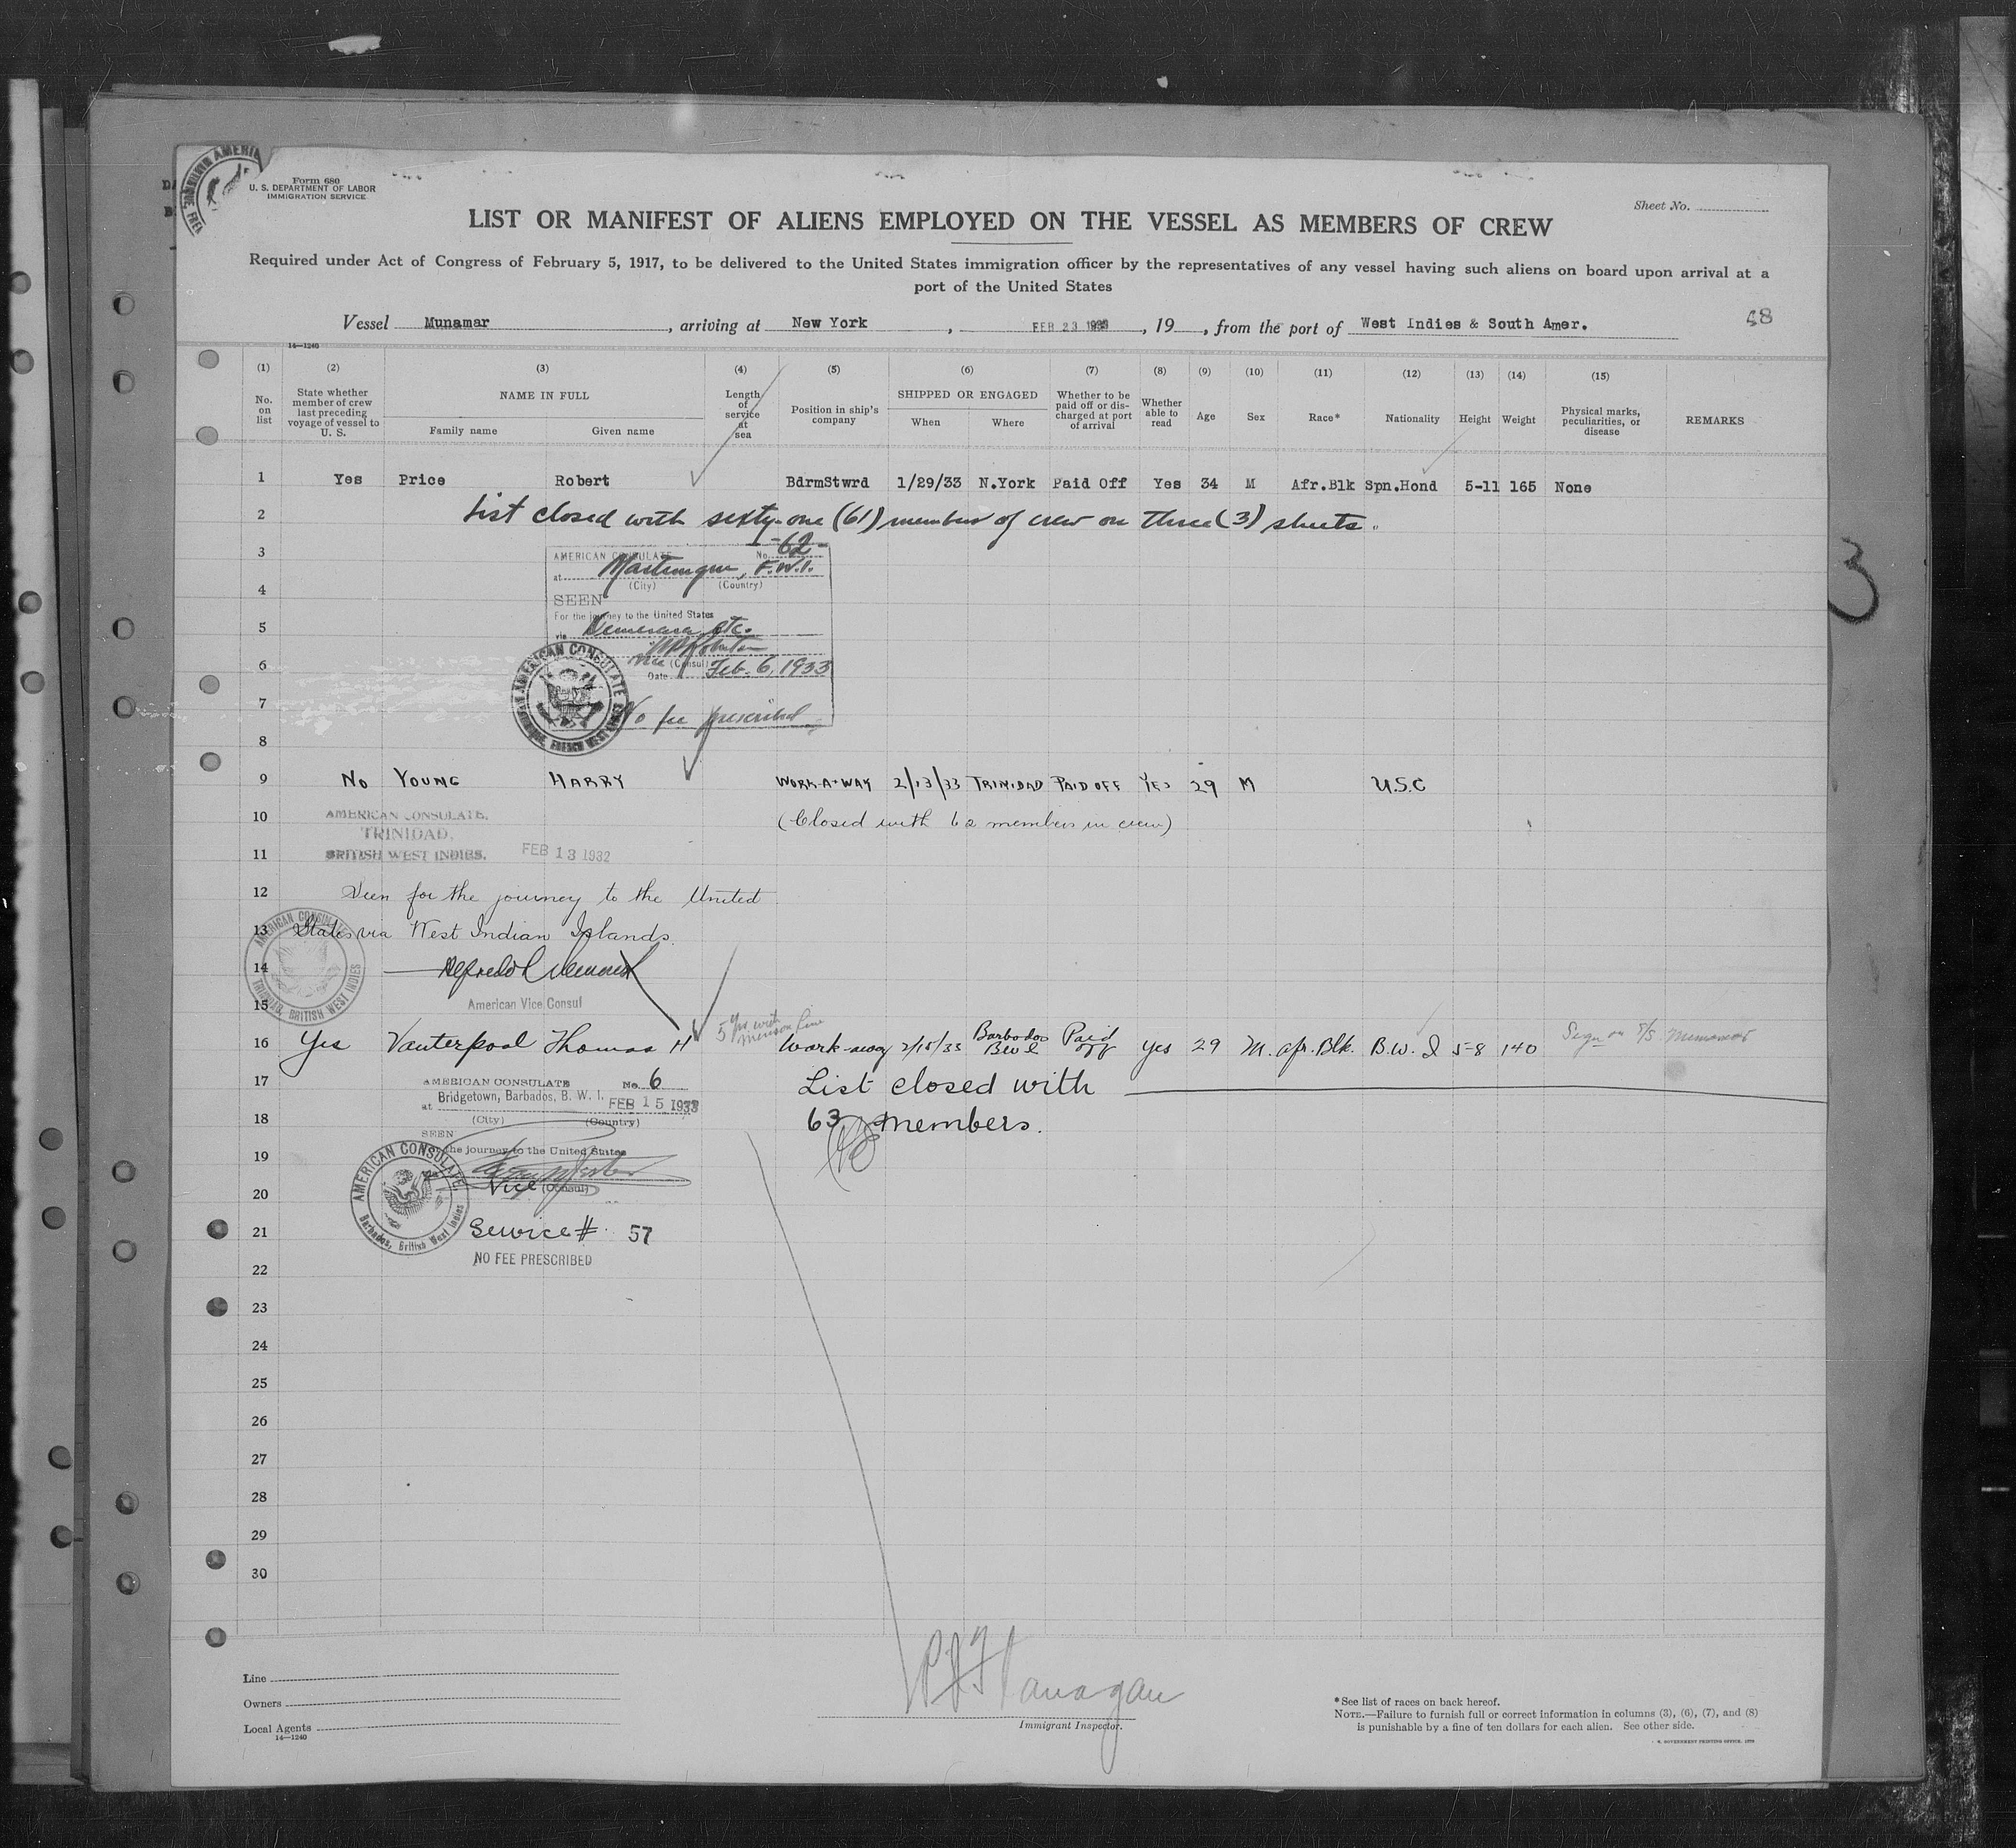 Form 680
U. S. DEPARTMENT OF LABOR
IMMIGRATION SERVICE
Sheet No.
LIST OR MANIFEST OF ALIENS EMPLOYED ON THE VESSEL AS MEMBERS OF CREW
Required under Act of Congress of February 5, 1917, to be delivered to the United States immigration officer by the representatives of any vessel having such aliens on board upon arrival at a
port of the United States
Vessel Munamar, arriving at New York, FEB 23 1933, 19 , from the port of West Indies & South Amer.
14—1240
(1) (2) (3) (4) (5) (6) (7) (8) (9) (10) (11) (12) (13) (14) (15)
No. on list
State whether member of crew last preceding voyage of vessel to U. S.
NAME IN FULL
Family name Given name
Length of service at sea
Position in ship's company
SHIPPED OR ENGAGED
When Where
Whether to be paid off or discharged at port of arrival
Whether able to read
Age Sex Race* Nationality Height Weight
Physical marks, peculiarities, or disease
REMARKS
1 Yes Price Robert BdrmStwrd 1/29/33 N.York Paid Off Yes 34 M Afr.Blk Spn.Hond 5-11 165 None
2 List closed with sixty-one (61) members of crew on three (3) sheets.
3 AMERICAN CONSULATE No. 62
at Martinique, F.W.I.
4 (City) (Country)
SEEN
For the journey to the United States
5 via Demerara etc.
6 Vice (Consul)
Date Feb. 6, 1933
7 No fee prescribed
8
9 No YOUNG HARRY WORK-A-WAY 2/13/33 TRINIDAD PAID OFF YES 29 M U.S.C
10 AMERICAN CONSULATE, (Closed with 62 members in crew)
TRINIDAD,
11 BRITISH WEST INDIES. FEB 13 1932
12 Seen for the journey to the United
13 States via West Indian Islands.
AMERICAN CONSULATE
TRINIDAD, BRITISH WEST INDIES
14
15 American Vice Consul
16 Yes Vanterpool Thomas H 5 yrs with Munson line Work-away 2/15/33 Barbados BWI Paid off yes 29 M. Afr. Blk. B.W.I 5-8 140
17 AMERICAN CONSULATE No. 6 List closed with
at Bridgetown, Barbados, B. W. I. FEB 15 1933
18 (City) (Country) 63 members.
SEEN
19 For the journey to the United States
20 Vice (Consul)
AMERICAN CONSULATE
Barbados, British West Indies
21 Service # 57
NO FEE PRESCRIBED
22
23
24
25
26
27
28
29
30
3
Line
Owners
Local Agents
14—1240
Flanagan
Immigrant Inspector.
*See list of races on back hereof.
NOTE.—Failure to furnish full or correct information in columns (3), (6), (7), and (8)
is punishable by a fine of ten dollars for each alien. See other side.